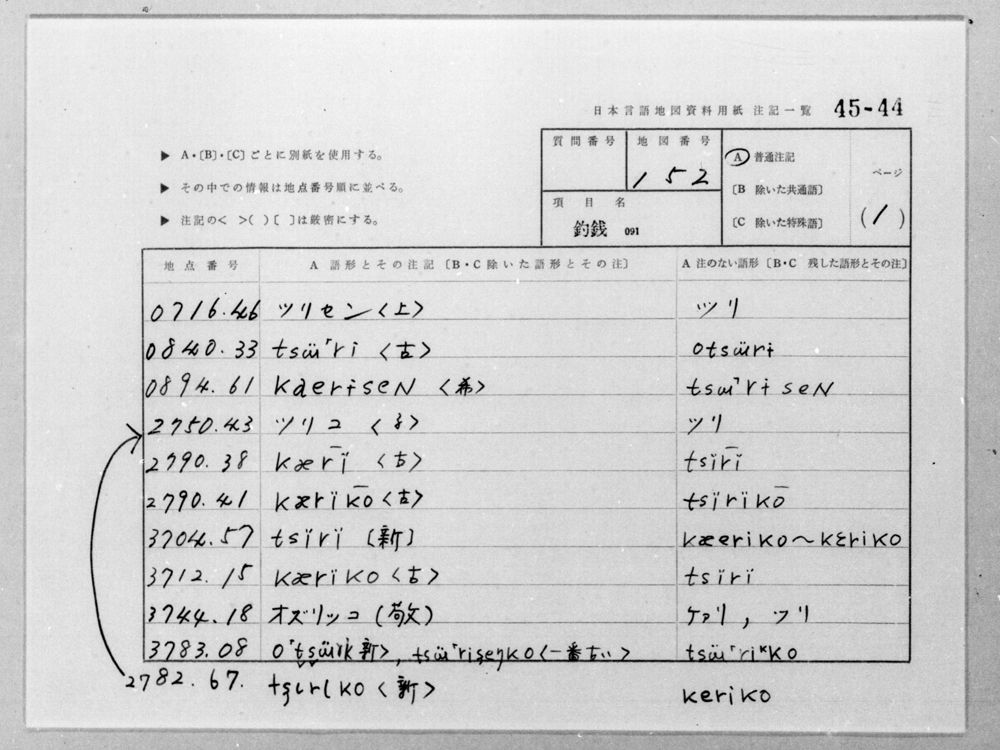 日本言語地図資料用紙 注記一覧 45-44
▶ A・〔B〕・〔C〕ごとに別紙を使用する。
▶ その中での情報は地点番号順に並べる。
▶ 注記の< >( )〔 〕は厳密にする。
質問番号 地図番号 152
項目名 釣銭 091
Ⓐ 普通注記
〔B 除いた共通語〕
〔C 除いた特殊語〕
ページ (1)
地点番号 A 語形とその注記〔B・C 除いた語形とその注〕 A 注のない語形〔B・C 残した語形とその注〕
0716.46 ツリセン<上> ツリ
0840.33 tsɯ̈ʳri <古> otsɯ̈rɨ
0894.61 kaerɨseN <希> tsɯ̈ʳrɨseN
2750.43 ツリコ ツリ
2790.38 kærï̄ <古> tsïrï̄
2790.41 kærikō <古> tsïrikō
3704.57 tsïrï 〔新〕 kæeriko～kɛriko
3712.15 kæriko <古> tsïrï
3744.18 オズリッコ (敬) ケァリ, ツリ
3783.08 新>, <一番古い>
2782.67. <新> keriko